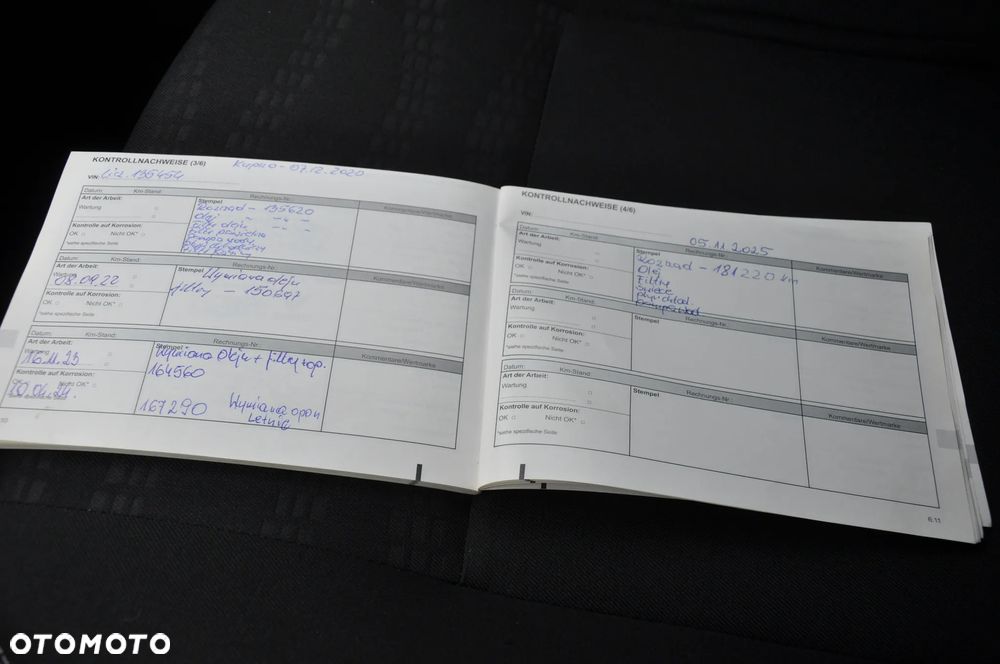 KONTROLLNACHWEISE (3/6)
Kupno - 07.12.2020
VIN: Licz. 135454
Datum: Km-Stand: Rechnungs-Nr.
Art der Arbeit: Stempel Kommentare/Wertmarke
Wartung
Rozrząd - 135620
Olej
Filtr oleju
Filtr powietrza
Pompa wody
Kontrolle auf Korrosion:
OK Nicht OK*
*siehe spezifische Seite
Datum: Km-Stand: Rechnungs-Nr.
Art der Arbeit: Stempel Kommentare/Wertmarke
Wartung
08.09.22
Wymiana oleju
filtry - 150647
Kontrolle auf Korrosion:
OK Nicht OK*
*siehe spezifische Seite
Datum: Km-Stand: Rechnungs-Nr.
Art der Arbeit: Stempel Kommentare/Wertmarke
Wartung
16.11.23
Wymiana Oleju + filtry op.
164560
Kontrolle auf Korrosion:
Nicht OK*
20.04.24.
167290 Wymiana opon
Letnie
KONTROLLNACHWEISE (4/6)
VIN:
05.11.2025
Datum: Km-Stand: Rechnungs-Nr.
Art der Arbeit: Stempel Kommentare/Wertmarke
Wartung
Rozrząd - 181220 km
Olej
Filtry
Świece
płyn chłod
Kontrolle auf Korrosion:
OK Nicht OK*
*siehe spezifische Seite
Datum: Km-Stand: Rechnungs-Nr.
Art der Arbeit: Stempel Kommentare/Wertmarke
Wartung
Kontrolle auf Korrosion:
OK Nicht OK*
*siehe spezifische Seite
Datum: Km-Stand: Rechnungs-Nr.
Art der Arbeit: Stempel Kommentare/Wertmarke
Wartung
Kontrolle auf Korrosion:
OK Nicht OK*
*siehe spezifische Seite
6.11
OTOMOTO